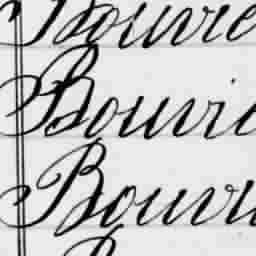 Bouvie
Bouvie
Bouvi